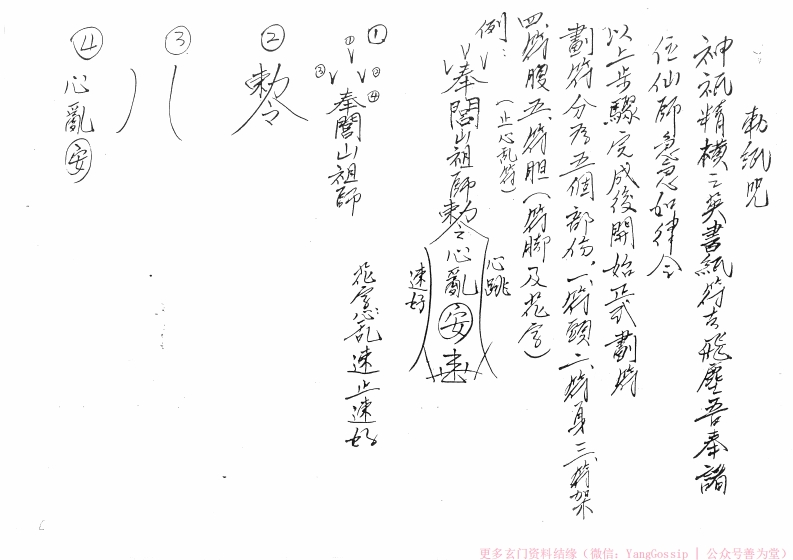 勅紙咒
神祇精橫之英書紙符去飛塵吾奉諸
位仙師急急如律令
以上步驟完成後開始正式劃符
劃符分為五個部份，一、符頭二、符身三、符架
四、符腹五、符胆（符脚及花字）
例：（止心乱符）
奉閭山祖師勅令心亂安速
心跳
速好
花字心乱速止速好
①
① ② ③ ④
奉閭山祖師
②
勅令
③
④
心亂安
更多玄门资料结缘（微信：YangGossip | 公众号善为堂）